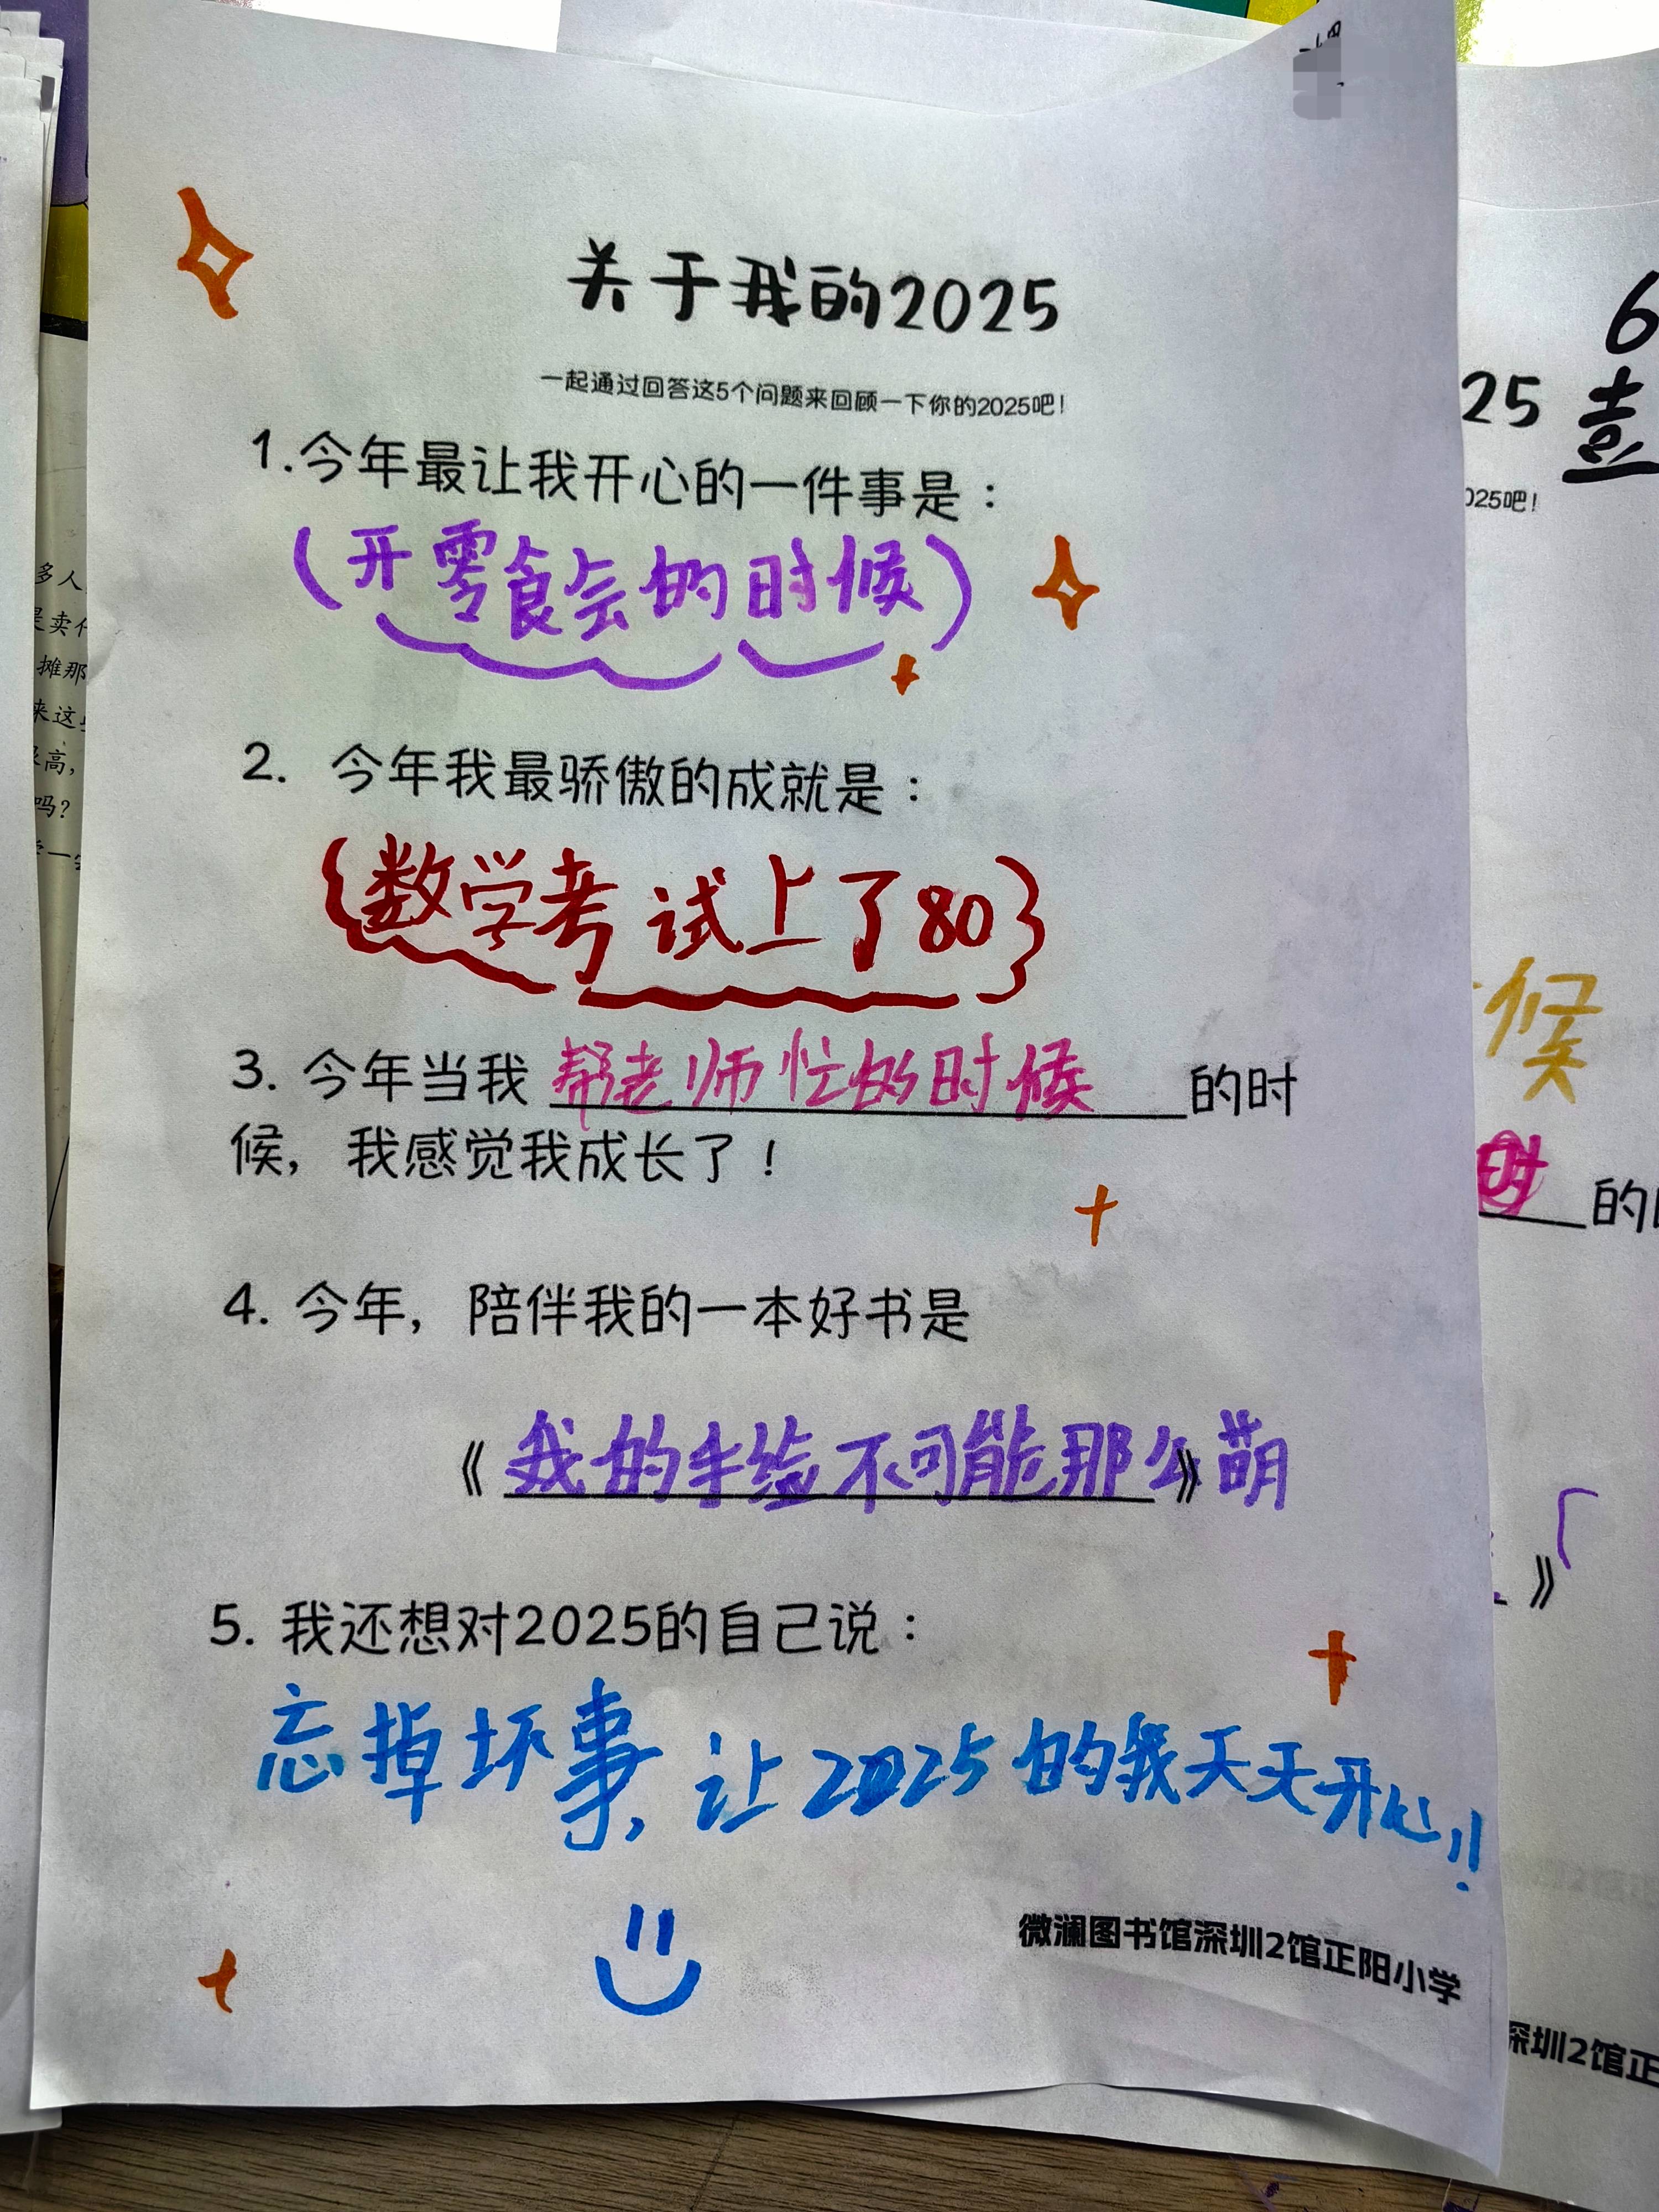 关于我的2025
一起通过回答这5个问题来回顾一下你的2025吧！
1.今年最让我开心的一件事是：
（开零食会的时候）
2. 今年我最骄傲的成就是：
{数学考试上了80}
3. 今年当我帮老师忙的时候的时
候，我感觉我成长了！
4. 今年，陪伴我的一本好书是
《我的手绘不可能那么》萌
5. 我还想对2025的自己说：
忘掉坏事，让2025的我天天开心!!
微澜图书馆深圳2馆正阳小学
多人
是卖
摊那
来这
高，
吗？
一
6
25
壹
025吧！
候
的
》
深圳2馆正